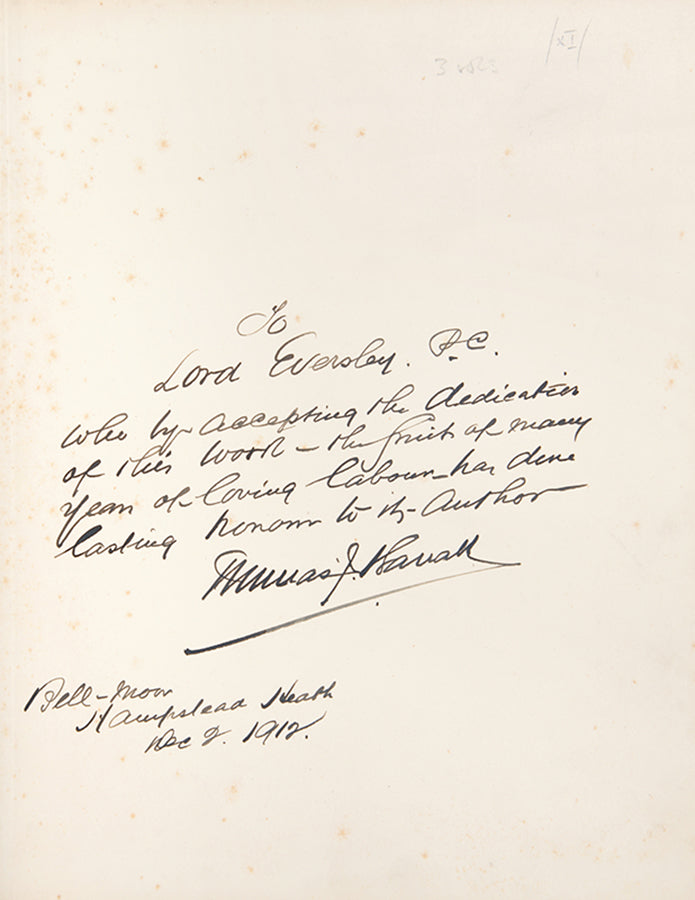 /XI/
3 vols
To
Lord Eversley. P.C.
who by accepting the dedication
of this work – the fruit of many
years of loving labour – has done
lasting honour to its Author
Thomas J. Barratt
Bell-Moor
Hampstead Heath
Dec 2. 1912.